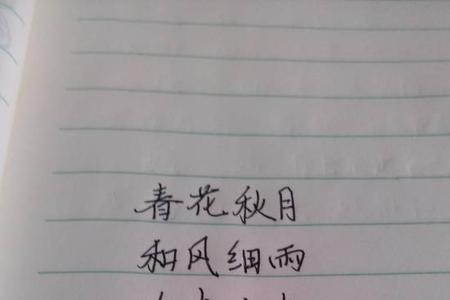 春花秋月
和风细雨